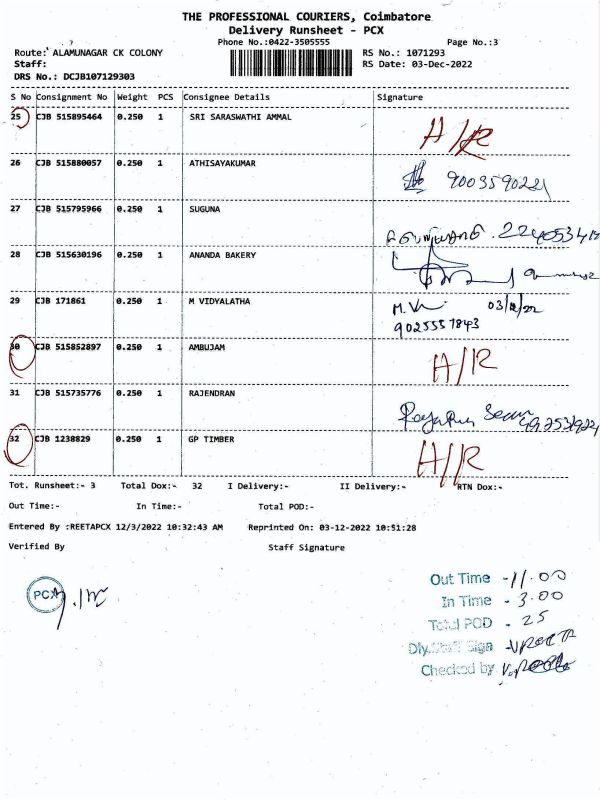 THE PROFESSIONAL COURIERS, Coimbatore
Delivery Runsheet - PCX
Phone No.:0422-3505555 Page No.:3
Route: ALAMUNAGAR CK COLONY RS No.: 1071293
Staff: RS Date: 03-Dec-2022
DRS No.: DCJB107129303
S No Consignment No Weight PCS Consignee Details Signature
25 CJB 515895464 0.250 1 SRI SARASWATHI AMMAL H/R
26 CJB 515880057 0.250 1 ATHISAYAKUMAR 9003590221
27 CJB 515795966 0.250 1 SUGUNA
28 CJB 515630196 0.250 1 ANANDA BAKERY
29 CJB 171861 0.250 1 M VIDYALATHA 03/12/22
9025557843
30 CJB 515852897 0.250 1 AMBUJAM H/R
31 CJB 515735776 0.250 1 RAJENDRAN
32 CJB 1238829 0.250 1 GP TIMBER H/R
Tot. Runsheet:- 3 Total Dox:- 32 I Delivery:- II Delivery:- RTN Dox:-
Out Time:- In Time:- Total POD:-
Entered By :REETAPCX 12/3/2022 10:32:43 AM Reprinted On: 03-12-2022 10:51:28
Verified By Staff Signature
PCX
Out Time - 11.00
In Time - 3.00
Total POD - 25
Dly.Staff Sign
Checked by